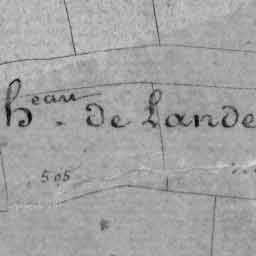 heau. de Lande
505